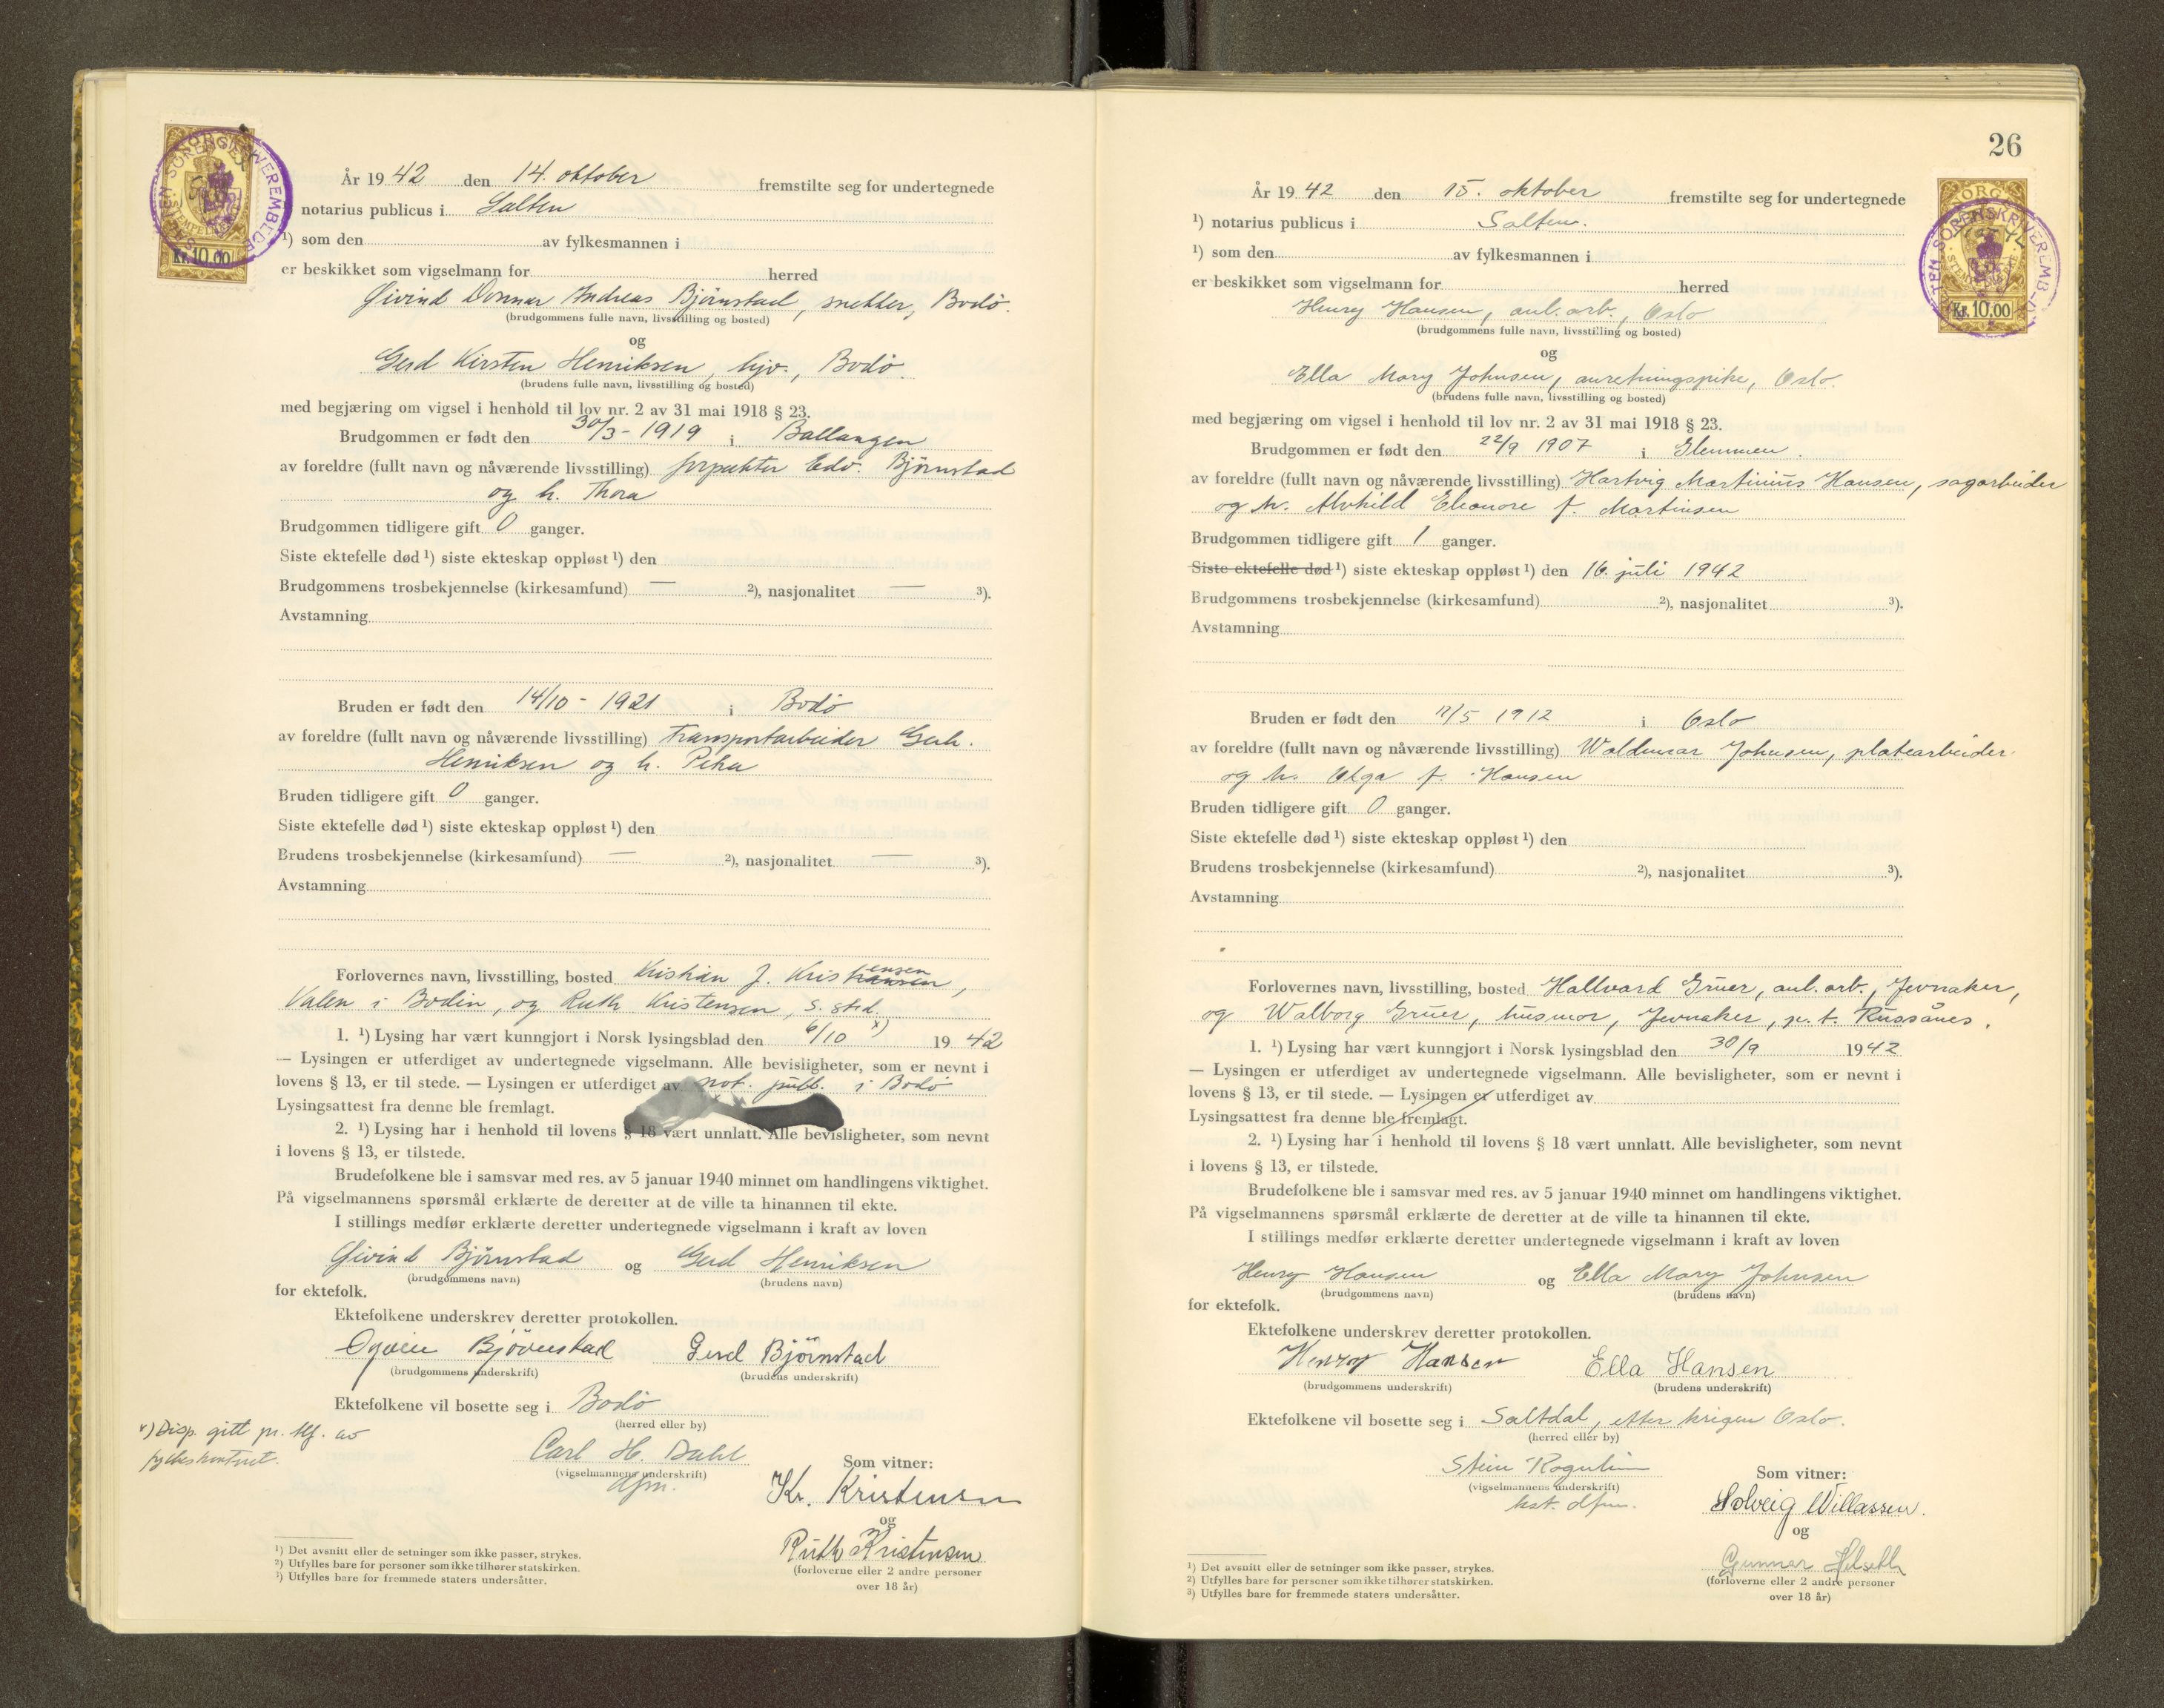 År 1942 den 14. oktober fremstilte seg for undertegnede
notarius publicus i Salten
¹) som den av fylkesmannen i
er beskikket som vigselmann for herred
Øivind Donnar Andreas Bjørnstad, snekker, Bodø.
(brudgommens fulle navn, livsstilling og bosted)
og
Gerd Kirsten Henriksen, hjv., Bodø.
(brudens fulle navn, livsstilling og bosted)
med begjæring om vigsel i henhold til lov nr. 2 av 31 mai 1918 § 23.
Brudgommen er født den 30/3 - 1919 i Ballangen
av foreldre (fullt navn og nåværende livsstilling) forpakter Edv. Bjørnstad
og h. Thora
Brudgommen tidligere gift 0 ganger.
Siste ektefelle død ¹) siste ekteskap oppløst ¹) den
Brudgommens trosbekjennelse (kirkesamfund) — ²), nasjonalitet — ³).
Avstamning
Bruden er født den 14/10 - 1921 i Bodø
av foreldre (fullt navn og nåværende livsstilling) transportarbeider Gerh.
Henriksen og h. Petra
Bruden tidligere gift 0 ganger.
Siste ektefelle død ¹) siste ekteskap oppløst ¹) den
Brudens trosbekjennelse (kirkesamfund) — ²), nasjonalitet — ³).
Avstamning
Forlovernes navn, livsstilling, bosted Kristian J. Kristensen,
Valen i Bodin, og Ruth Kristensen, s. std.
1. ¹) Lysing har vært kunngjort i Norsk lysingsblad den 6/10 x) 1942
— Lysingen er utferdiget av undertegnede vigselmann. Alle bevisligheter, som er nevnt i
lovens § 13, er til stede. — Lysingen er utferdiget av not. publ. i Bodø
Lysingsattest fra denne ble fremlagt.
2. ¹) Lysing har i henhold til lovens § 18 vært unnlatt. Alle bevisligheter, som nevnt
i lovens § 13, er tilstede.
Brudefolkene ble i samsvar med res. av 5 januar 1940 minnet om handlingens viktighet.
På vigselmannens spørsmål erklærte de deretter at de ville ta hinannen til ekte.
I stillings medfør erklærte deretter undertegnede vigselmann i kraft av loven
Øivind Bjørnstad og Gerd Henriksen
(brudgommens navn) (brudens navn)
for ektefolk.
Ektefolkene underskrev deretter protokollen.
Bjørnstad Gerd Bjørnstad
(brudgommens underskrift) (brudens underskrift)
Ektefolkene vil bosette seg i Bodø
(herred eller by)
x) Disp. gitt pr. tlf. av
fylkeskontoret.
Carl H. Dahl
(vigselmannens underskrift)
dfm.
Som vitner:
Kr. Kristensen
og
Ruth Kristensen
(forloverne eller 2 andre personer
over 18 år)
¹) Det avsnitt eller de setninger som ikke passer, strykes.
²) Utfylles bare for personer som ikke tilhører statskirken.
³) Utfylles bare for fremmede staters undersåtter.
NORGE
STEMPEL
Kr. 10,00
SALTEN SORENSKRIVEREMBEDE
26
År 1942 den 15. oktober fremstilte seg for undertegnede
¹) notarius publicus i Salten.
¹) som den av fylkesmannen i
er beskikket som vigselmann for herred
Henry Hansen, anl. arb., Oslo
(brudgommens fulle navn, livsstilling og bosted)
og
Ella Mary Johnsen, anretningspike, Oslo.
(brudens fulle navn, livsstilling og bosted)
med begjæring om vigsel i henhold til lov nr. 2 av 31 mai 1918 § 23.
Brudgommen er født den 22/9 1907 i Glemmen.
av foreldre (fullt navn og nåværende livsstilling) Hartvig Martinius Hansen, sagarbeider
og h. Alvhild Eleonore f. Martinsen
Brudgommen tidligere gift 1 ganger.
Siste ektefelle død ¹) siste ekteskap oppløst ¹) den 16. juli 1942
Brudgommens trosbekjennelse (kirkesamfund) ²), nasjonalitet ³).
Avstamning
Bruden er født den 11/5 1912 i Oslo
av foreldre (fullt navn og nåværende livsstilling) Waldemar Johnsen, platearbeider
og h. Olga f. Hansen
Bruden tidligere gift 0 ganger.
Siste ektefelle død ¹) siste ekteskap oppløst ¹) den
Brudens trosbekjennelse (kirkesamfund) ²), nasjonalitet ³).
Avstamning
Forlovernes navn, livsstilling, bosted Hallvard Gruer, anl. arb., Jevnaker,
og Walborg Gruer, husmor, Jevnaker, p. t. Russånes.
1. ¹) Lysing har vært kunngjort i Norsk lysingsblad den 30/9 1942
— Lysingen er utferdiget av undertegnede vigselmann. Alle bevisligheter, som er nevnt i
lovens § 13, er til stede. — Lysingen er utferdiget av
Lysingsattest fra denne ble fremlagt.
2. ¹) Lysing har i henhold til lovens § 18 vært unnlatt. Alle bevisligheter, som nevnt
i lovens § 13, er tilstede.
Brudefolkene ble i samsvar med res. av 5 januar 1940 minnet om handlingens viktighet.
På vigselmannens spørsmål erklærte de deretter at de ville ta hinannen til ekte.
I stillings medfør erklærte deretter undertegnede vigselmann i kraft av loven
Henry Hansen og Ella Mary Johnsen
(brudgommens navn) (brudens navn)
for ektefolk.
Ektefolkene underskrev deretter protokollen.
Henry Hansen Ella Hansen
(brudgommens underskrift) (brudens underskrift)
Ektefolkene vil bosette seg i Saltdal, etter krigen Oslo.
(herred eller by)
Stein Rognlien
(vigselmannens underskrift)
kst. dfm.
Som vitner:
Solveig Willassen.
og
Gunnar Helseth
(forloverne eller 2 andre personer
over 18 år)
¹) Det avsnitt eller de setninger som ikke passer, strykes.
²) Utfylles bare for personer som ikke tilhører statskirken.
³) Utfylles bare for fremmede staters undersåtter.
NORGE
Kr. 10,00